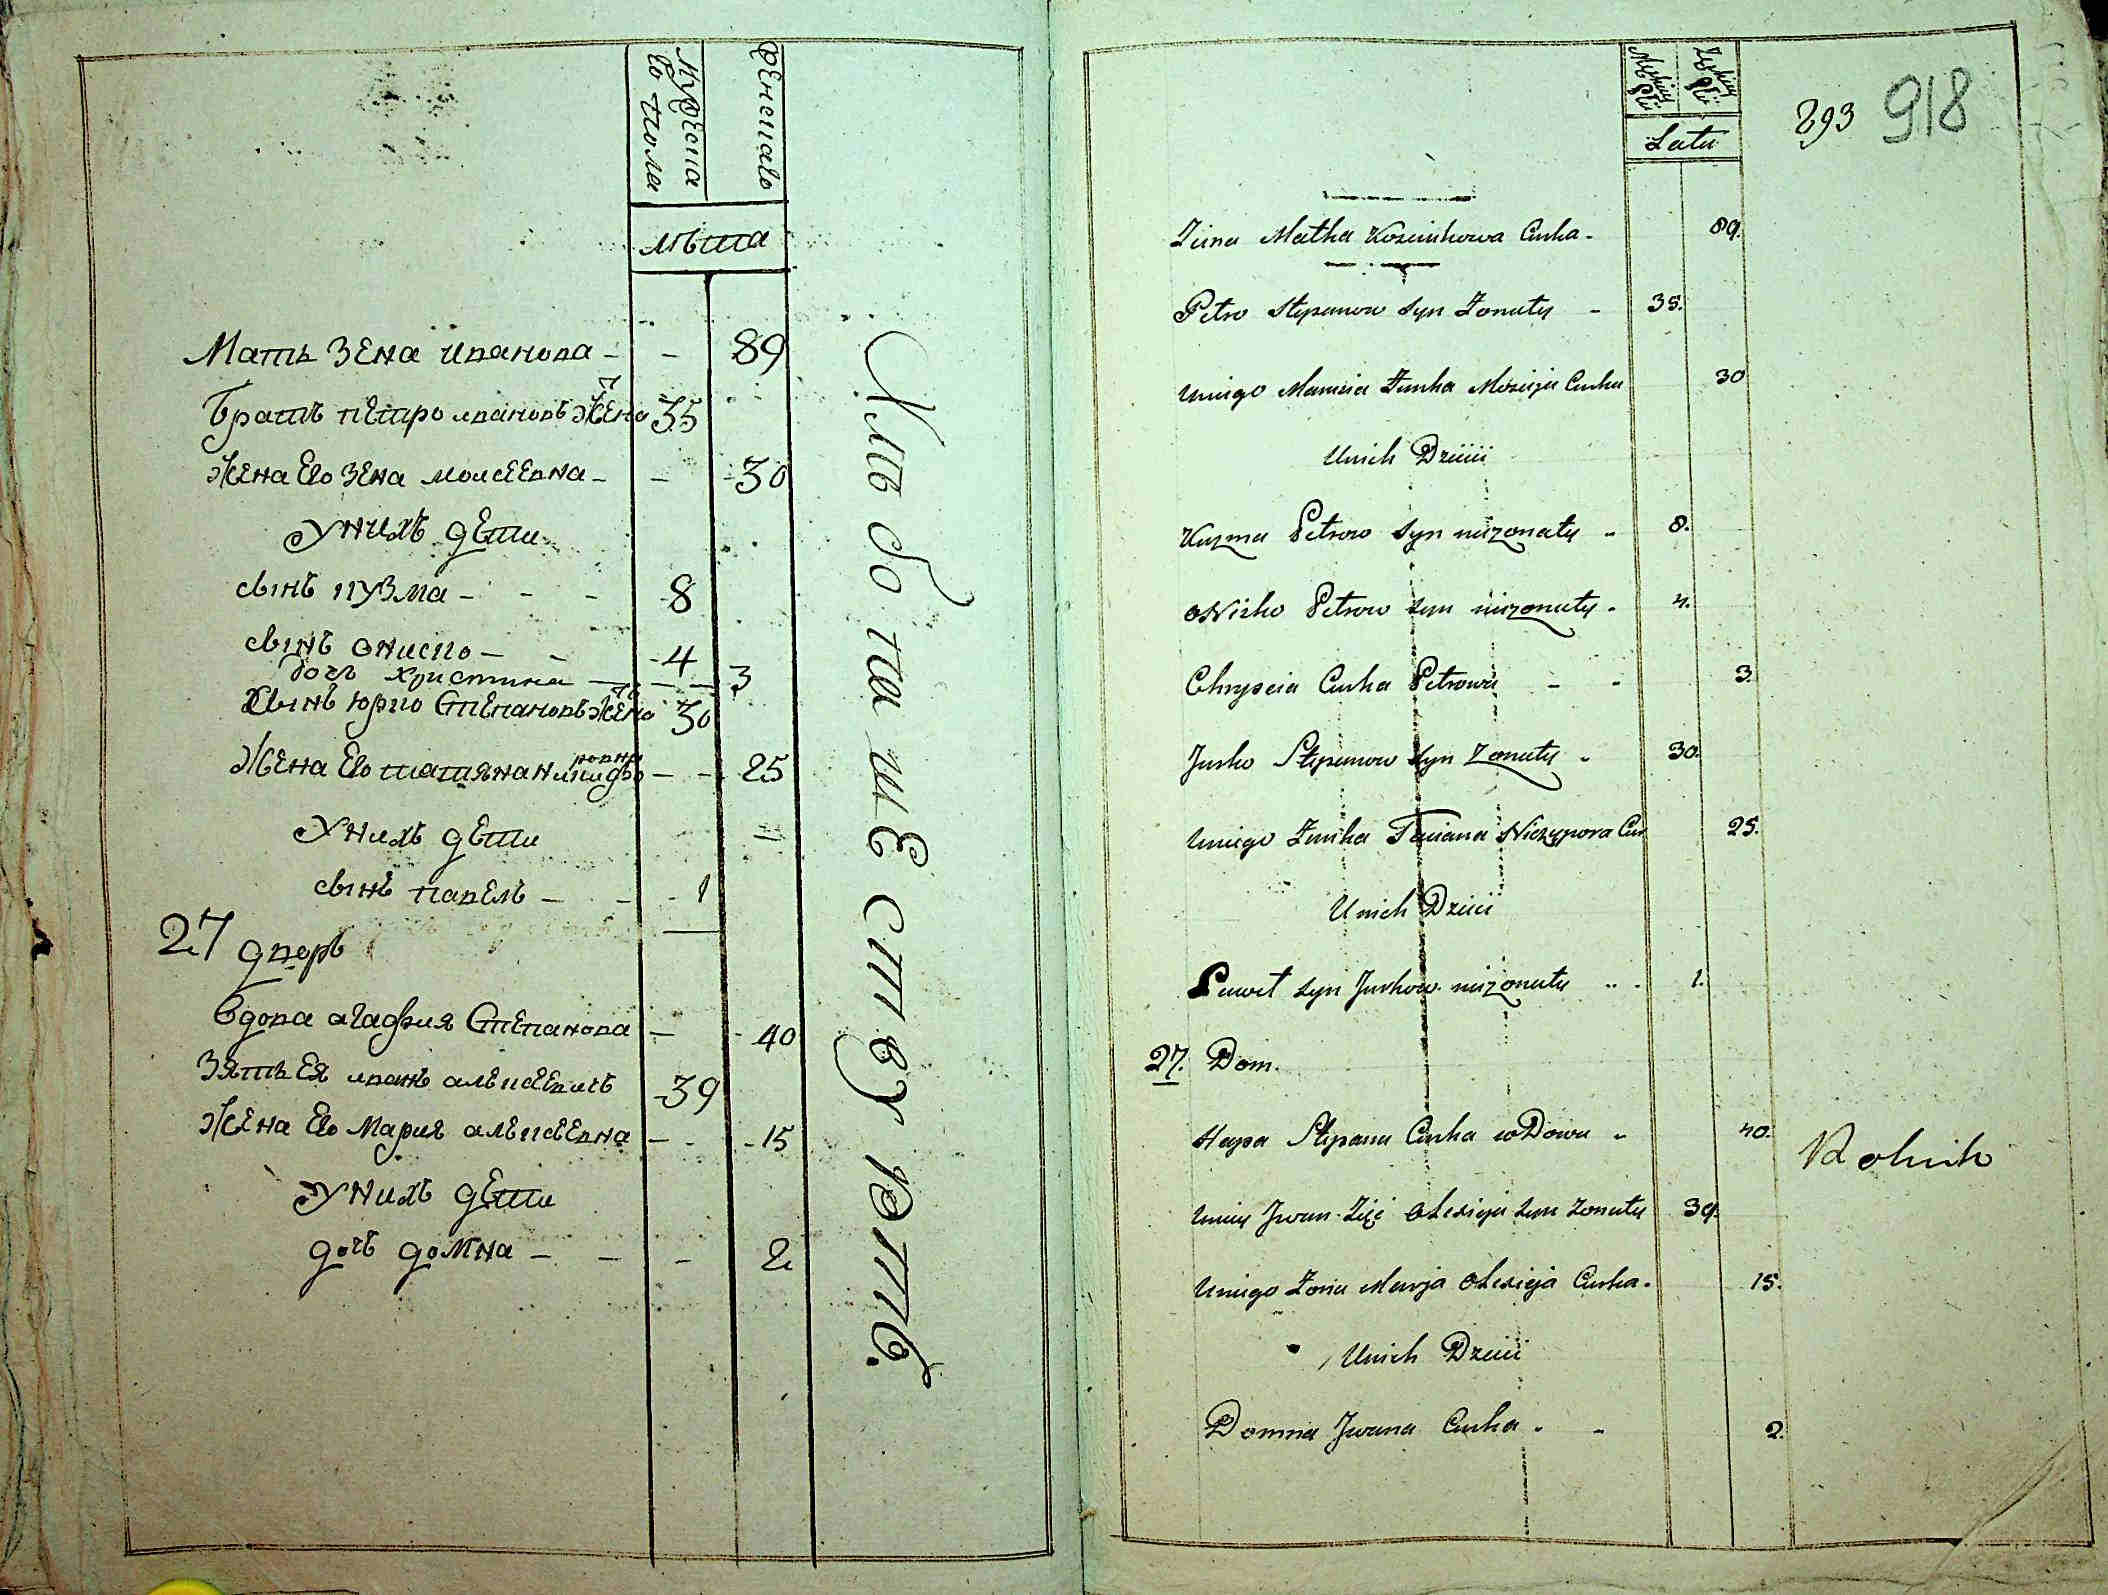 мужеска
го пола
женскаго
лѣта
Мать Зена иванова - - 89
братъ петро ивановъ женаᵀ 35
жена его Зена моисеевна - - 30
у нихъ дети
сынъ кузма - - - 8
сынъ ониско - - 4
дочь христина - - - 3
сынъ юрко Степановъ женаᵀ 30
ровна
жена его татяна никифо - - 25
у нихъ дети
сынъ павелъ - - 1
27 дворъ
вдова агафия Степанова - 40
Зять ея иванъ алексеевичъ 39
жена его Мария алексеевна - - 15
у нихъ дети
дочь домна - - - 2
Хлѣбопашеству ютъ.
293 918
Męskiej Płci
Żeńskiej Płci
Lata
Zina Matka Curka - 89.
Petro Stepanow Syn Zonaty - 35.
Uniego Zunka Mosieja Curka 30
Unich Dzieci
Kuzma Petrow Syn niezonaty - 8.
Onisko Petrow Syn niezonaty - 4.
Chryscia Curka Petrowa - - 3.
Jurko Stepanow Syn Zonaty - 30.
Uniego Zunka Taciana Niczypora Cur 25.
Unich Dzieci
Pawel Syn Jurkow niezonaty - - 1.
27. Dom.
Hapa Stepana Curka wDowa - 40.
Rolnik
Uniey Jwan Zięć Olexieja Syn Zonaty 39.
Uniego Zona Marja Olexieja Curka - 15.
Unich Dzieci
Domna Jwana Curka - - 2.